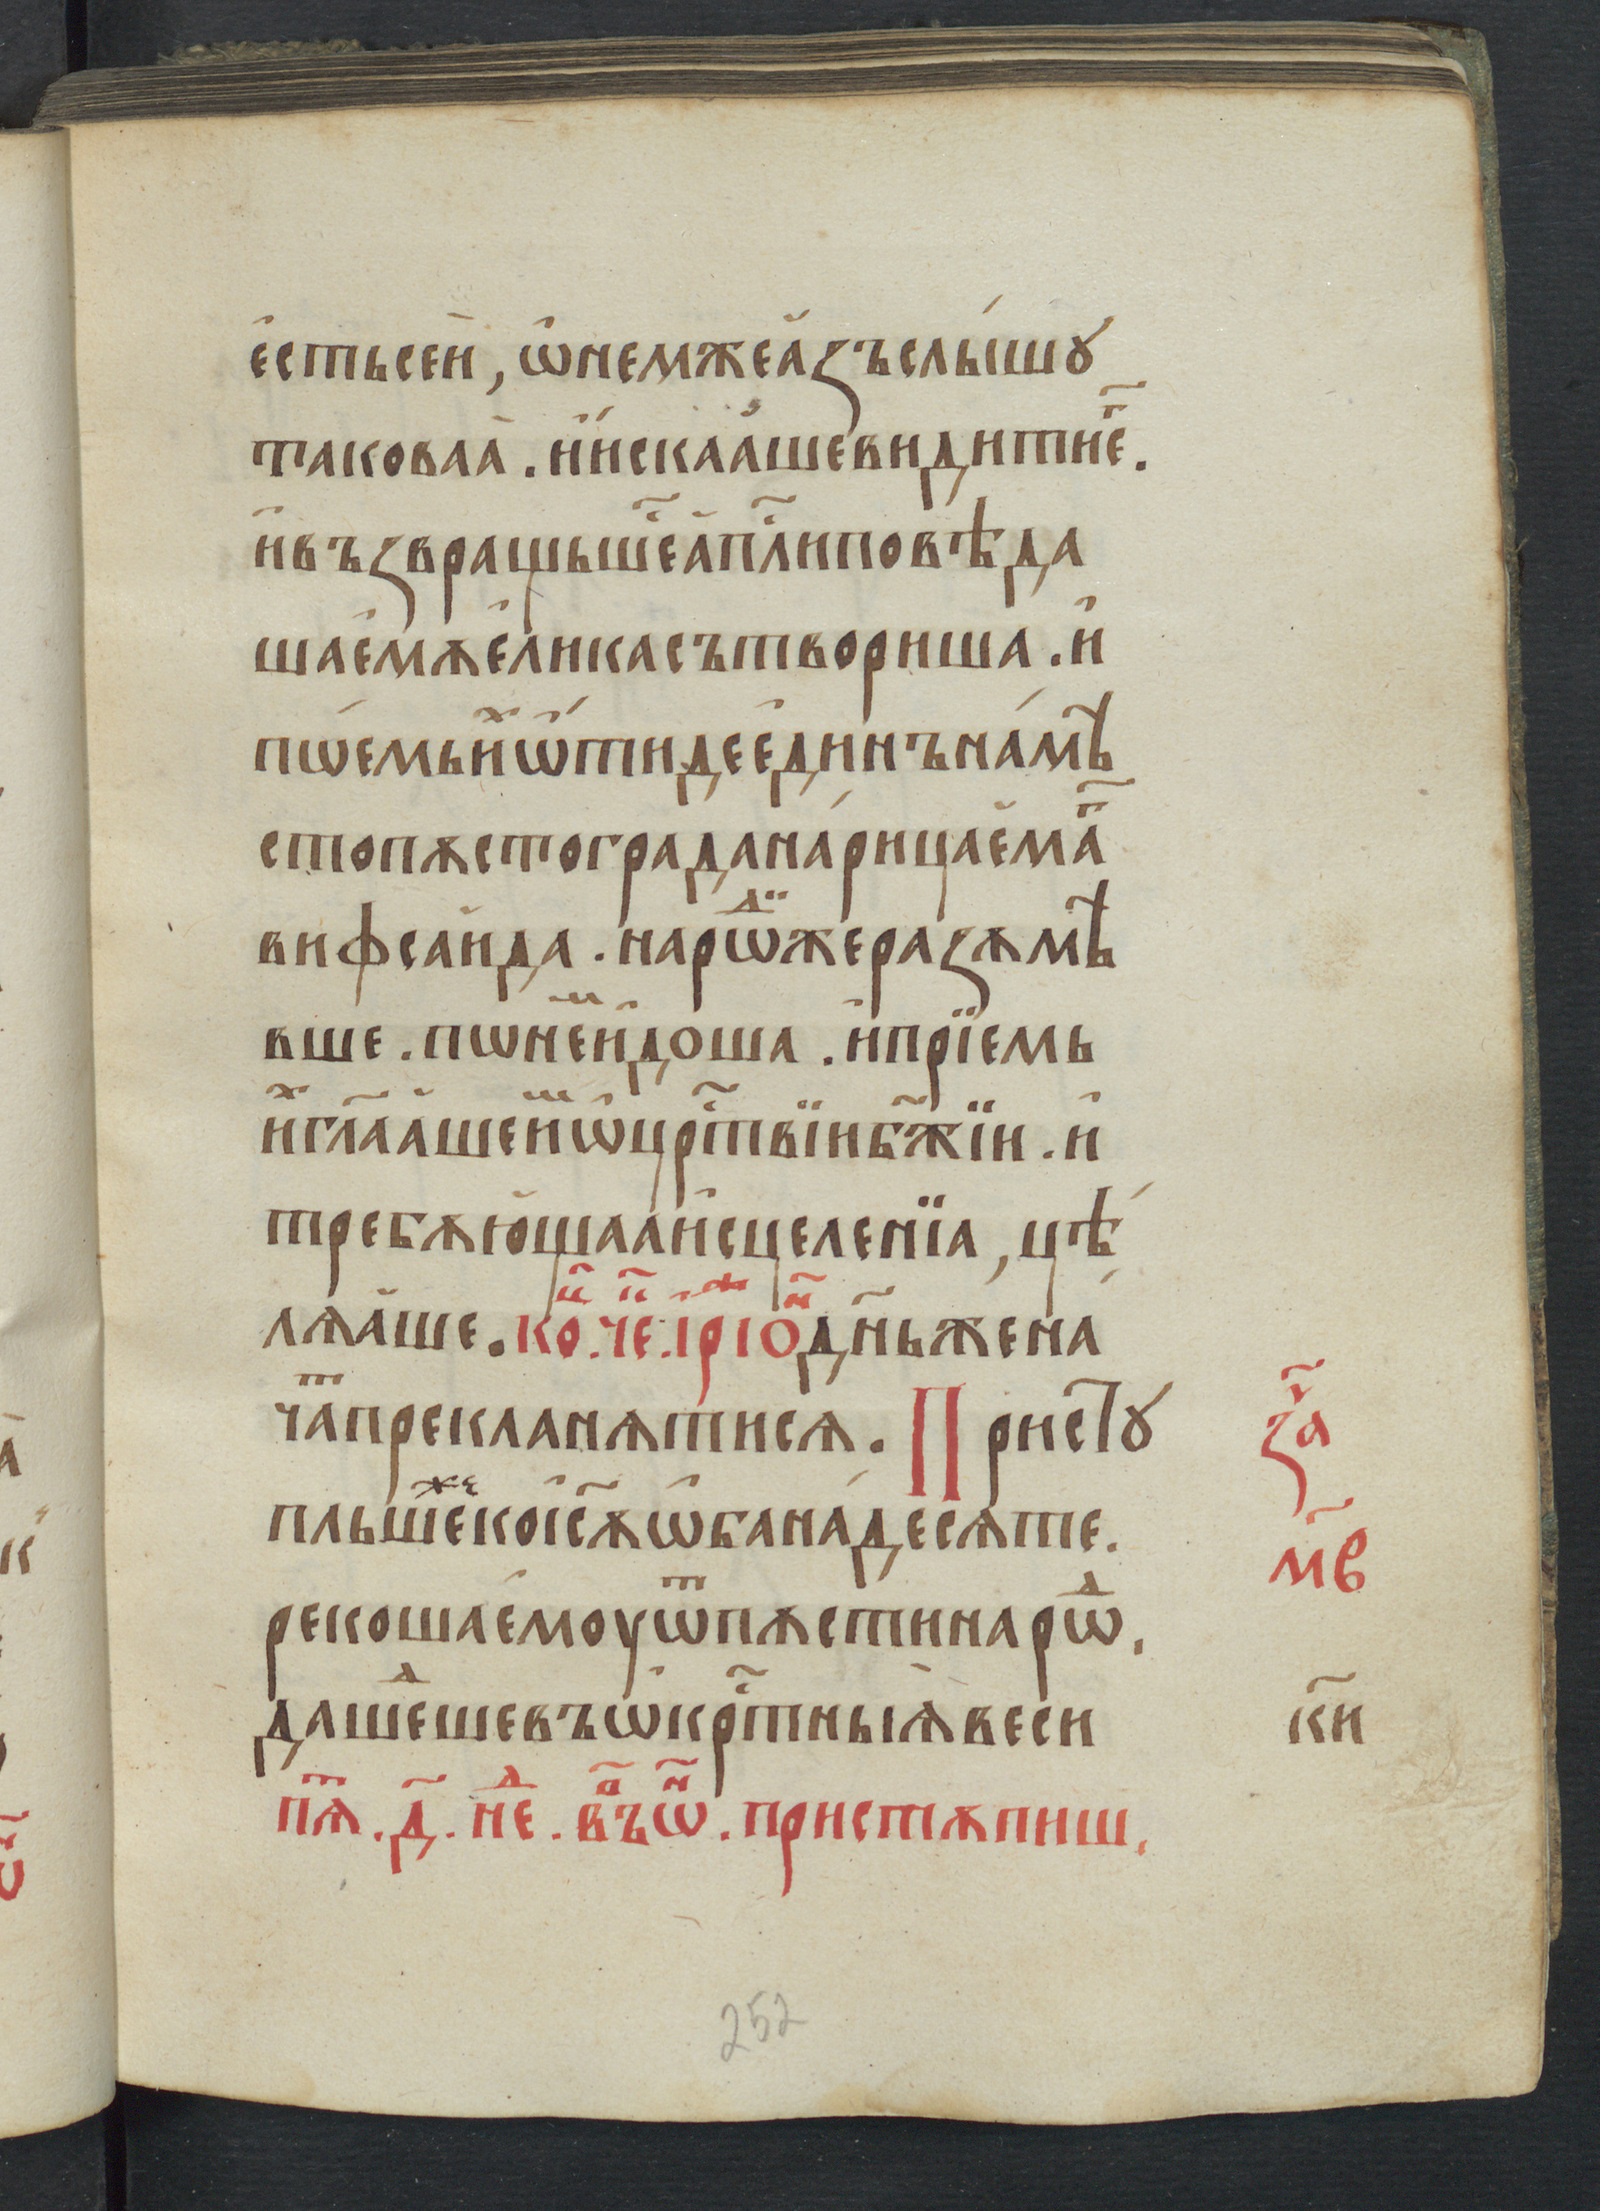 е҆стьсеи҆, ѡ҆немжеа҆ꙁъслы́шꙋ
таковаа҆. и҆и҆скаа҆шевидитиⷭ҇е.
и҆въꙁвращьшеⷭ҇а҆пⷭ҇липовѣда
шае҆мѫе҆ликасътвориша. и҆
пѡ́емьи҆ⷯѿ́тидее҆динъна́мѣ
стопѫстограданарица́е҆маⷢ҇
вифсаи҆да. нарѡⷣ҇жераꙁѫмѣ
вше. пѡнеⷨи҆доша. и҆прїемь
и҆ⷯгл҃аа҆шеи҆ⷨѡ҆црⷭ҇твїиб҃жїи. и҆
требѫю҆щааи҆сцеленїа, цѣ́
лꙗа҆ше. коⷩ҇.чеⷭ҇.і҆рїоⷩ҇д҃ньжена́
чаⷮпрекланѫтисѧ. Пристꙋ
пльшеⷤко і҆с҃ѫѡ҆бана́десѧте.
рекошае҆моуѿпѫстинарѡⷣ.
дашеⷣшевъѡ҆крⷭ҇тныѧ҆веси
пѧⷮ. д҃. неⷣ. въⷩ҇ѡⷩ҇. пристѫпиш.
ꙁаⷱ҇
м҃в
к҃и
252